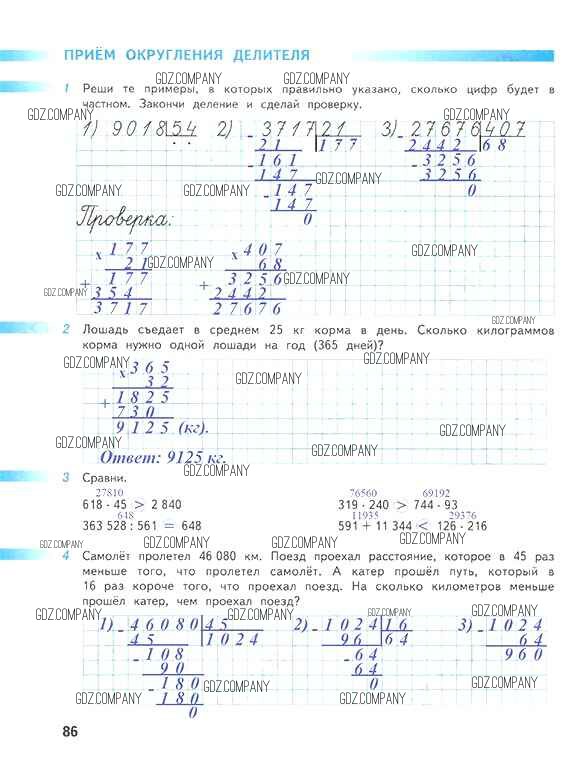 ПРИЁМ ОКРУГЛЕНИЯ ДЕЛИТЕЛЯ
GDZ.COMPANY GDZ.COMPANY
1 Реши те примеры, в которых правильно указано, сколько цифр будет в
частном. Закончи деление и сделай проверку.
GDZ.COMPANY GDZ.COMPANY
1) 9018 54 2) - 3717 21 3) - 27676 407
21 177 2442 68
- 161 - 3256
147 GDZ.COMPANY 3256
GDZ.COMPANY GDZ.COMPANY - 147 0 GDZ.COMPANY
147
0
Проверка:
x 177 x 407 GDZ.COMPANY
21 GDZ.COMPANY 68
+ 177 + 3256 GDZ.COMPANY
GDZ.COMPANY 354 2442
3717 27676
GDZ.COMPANY
2 Лошадь съедает в среднем 25 кг корма в день. Сколько килограммов
корма нужно одной лошади на год (365 дней)?
GDZ.COMPANY x 365 GDZ.COMPANY
32 GDZ.COMPANY
+ 1825
730
9125 (кг). GDZ.COMPANY
GDZ.COMPANY GDZ.COMPANY
Ответ: 9125 кг.
GDZ.COMPANY
3 Сравни.
27810 76560 69192
618 · 45 > 2 840 319 · 240 > 744 · 93
648 11935 29376
363 528 : 561 = 648 591 + 11 344 < 126 · 216
GDZ.COMPANY GDZ.COMPANY GDZ.COMPANY
4 Самолёт пролетел 46 080 км. Поезд проехал расстояние, которое в 45 раз
меньше того, что пролетел самолёт. А катер прошёл путь, который в
16 раз короче того, что проехал поезд. На сколько километров меньше
прошёл катер, чем проехал поезд?
GDZ.COMPANY GDZ.COMPANY GDZ.COMPANY GDZ.COMPANY
1) - 46080 45 2) - 1024 16 3) - 1024
45 1024 96 64 64
- 108 - 64 960
90 64
- 180 GDZ.COMPANY 0 GDZ.COMPANY
GDZ.COMPANY 180 GDZ.COMPANY
0
86